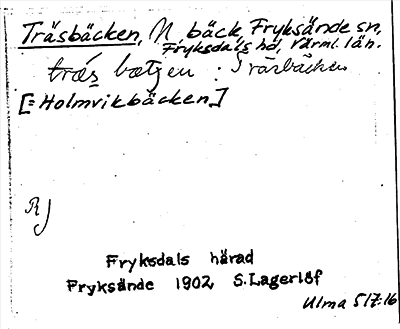 Träsbäcken, N, bäck, Fryksände sn,
Fryksdals hd, Värml. län.
træs bætsen : Träsbäcken
[= Holmvikbäcken]
RJ
Fryksdals härad
Fryksände 1902 S. Lagerlöf
Ulma 517:16